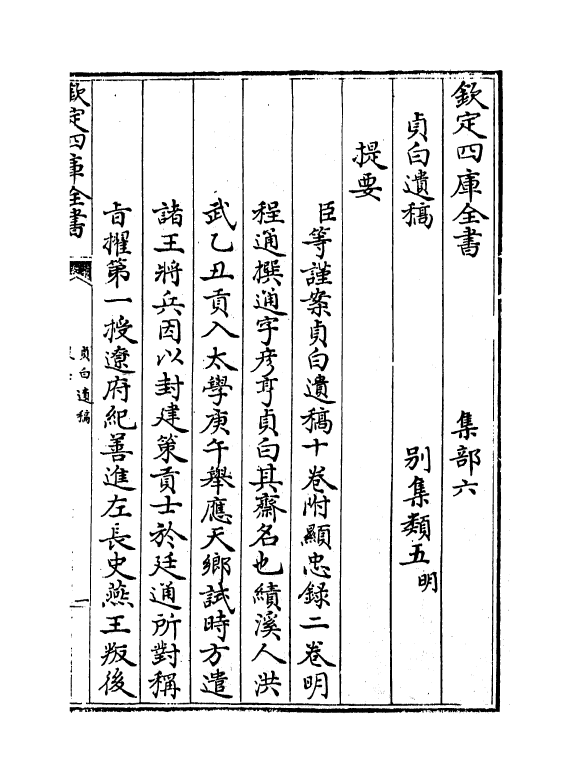 欽定四庫全書
集部六
貞白遺稿
別集類五明
提要
臣等謹案貞白遺稿十卷附顯忠録二卷明
程通撰通字彦亨貞白其齋名也績溪人洪
武乙丑貢入太學庚午舉應天鄉試時方遣
諸王將兵因以封建策貢士於廷通所對稱
旨擢第一授遼府紀善進左長史燕王叛後
欽定四庫全書
貞白遺稿
一